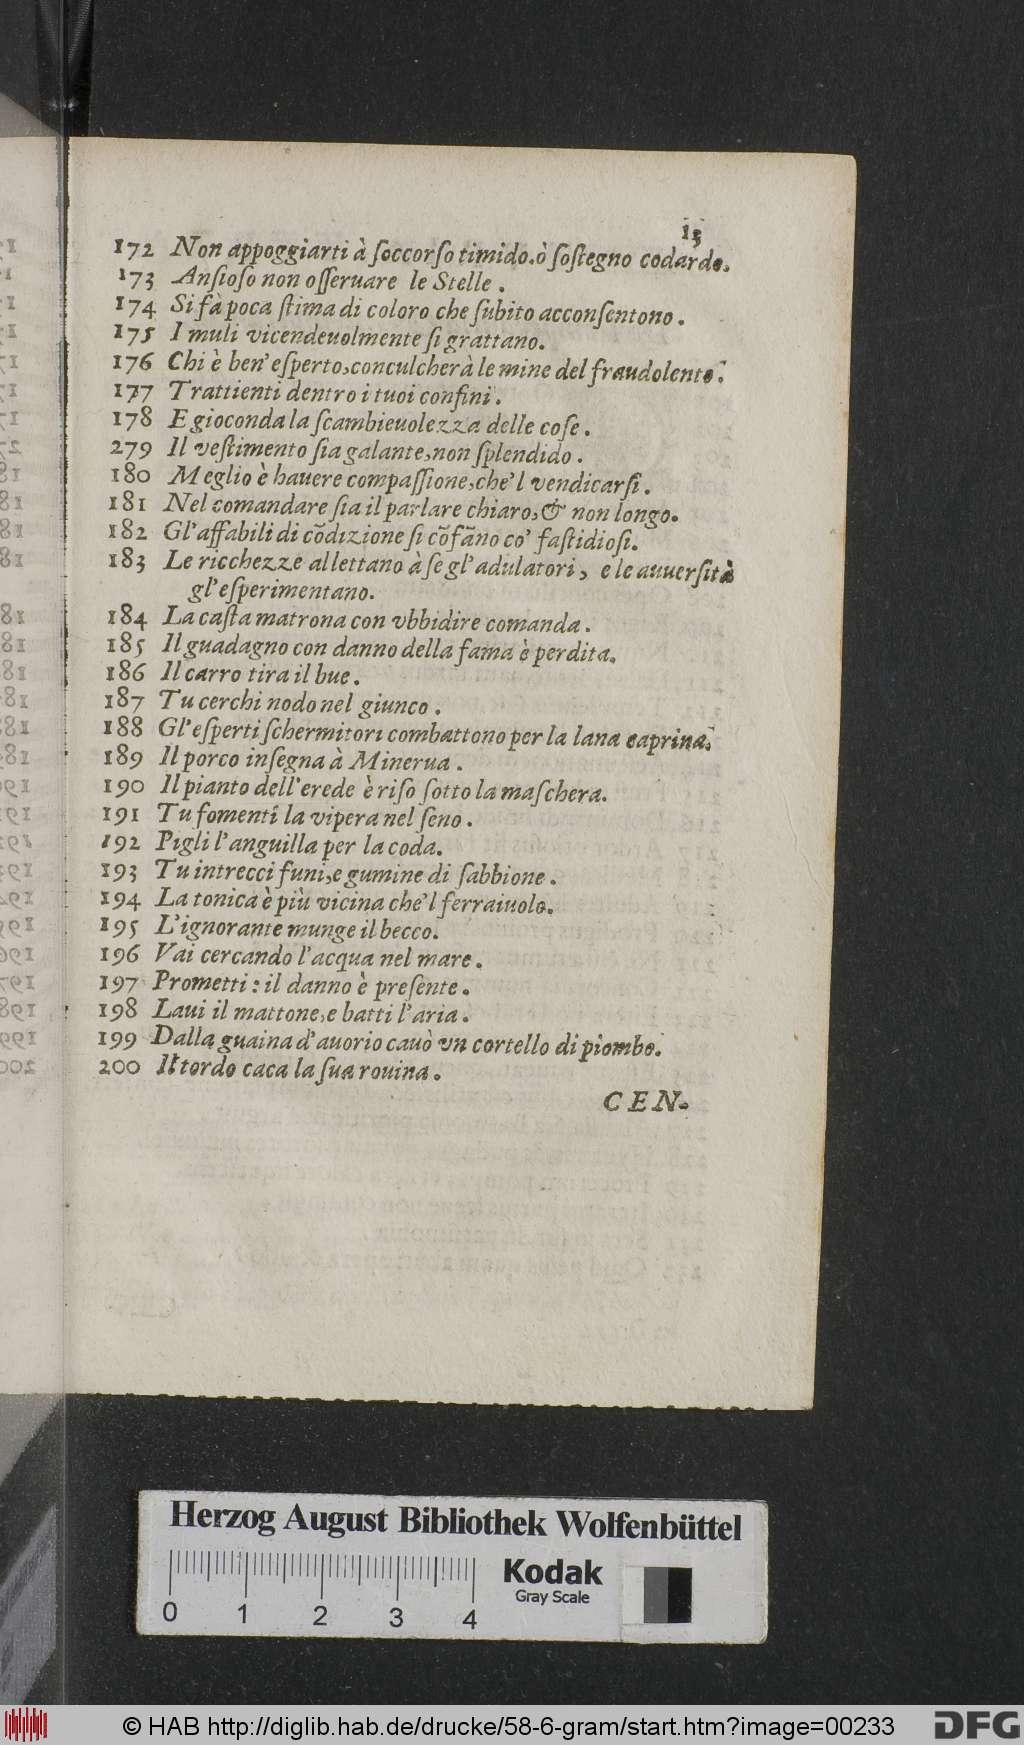 13
172 Non appoggiarti à ſoccorſo timido.ò ſoſtegno codardo.
173 Anſioſo non oſſeruare le Stelle .
174 Si fà poca ſtima di coloro che ſubito acconſentono .
175 I muli vicendeuolmente ſi grattano.
176 Chi è ben' eſperto,conculcherà le mine del fraudolento.
177 Trattienti dentro i tuoi confini .
178 E gioconda la ſcambieuolezza delle coſe .
279 Il veſtimento ſia galante,non ſplendido .
180 Meglio è hauere compaſſione,che'l vendicarſi .
181 Nel comandare ſia il parlare chiaro,& non longo.
182 Gl'affabili di cōdizione ſi cōfāno co' faſtidioſi.
183 Le ricchezze allettano à ſe gl'adulatori , e le auuerſità
gl'eſperimentano.
184 La caſta matrona con vbbidire comanda .
185 Il guadagno con danno della fama è perdita.
186 Il carro tira il bue .
187 Tu cerchi nodo nel giunco .
188 Gl'eſperti ſchermitori combattono per la lana caprina.
189 Il porco inſegna à Minerua .
190 Il pianto dell'erede è riſo ſotto la maſchera.
191 Tu fomenti la vipera nel ſeno .
192 Pigli l'anguilla per la coda.
193 Tu intrecci funi,e gumine di ſabbione .
194 La tonica è più vicina che'l ferraiuolo.
195 L'ignorante munge il becco.
196 Vai cercando l'acqua nel mare .
197 Prometti : il danno è preſente .
198 Laui il mattone,e batti l'aria .
199 Dalla guaina d'auorio cauò vn cortello di piombo.
200 Il tordo caca la ſua rouina .
CEN-
Herzog August Bibliothek Wolfenbüttel
Kodak
Gray Scale
0 1 2 3 4
© HAB http://diglib.hab.de/drucke/58-6-gram/start.htm?image=00233
DFG